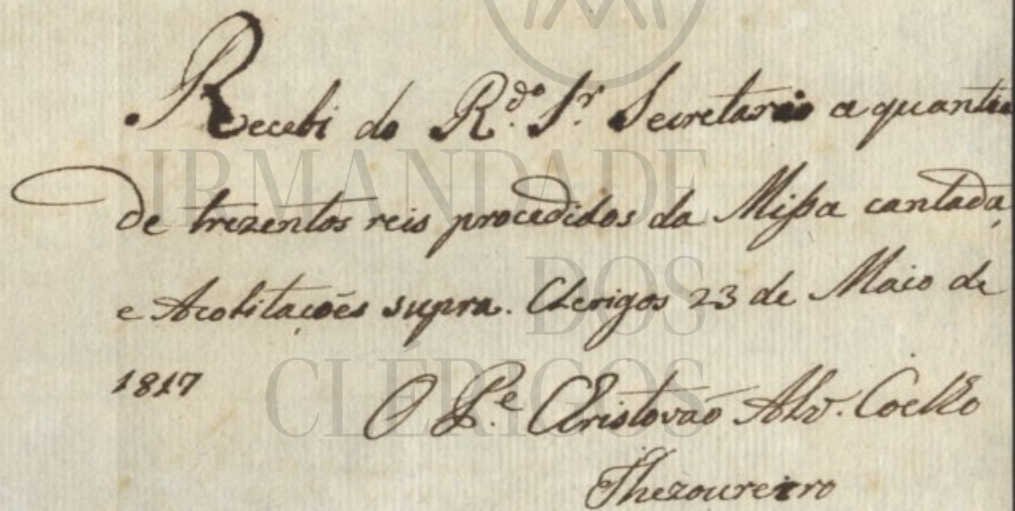 Recebi do R.do S.r Secretario a quantia
de trezentos reis procedidos da Missa cantada,
e Acolitacoẽs supra. Clerigos 23 de Maio de
1817
O P.e Christovão Alv. Coelho
Thezoureiro
IRMANDADE
DOS
CLÉRIGOS